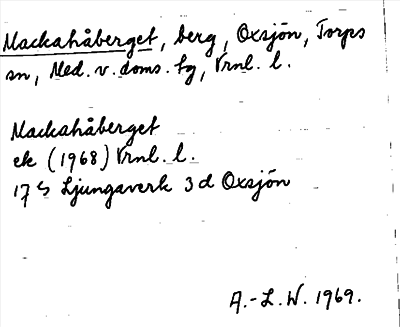 Mackahåberget, berg, Oxsjön, Torps
sn, Med. v. doms. tg, Vrnl. l.
Mackahåberget
ek (1968) Vrnl. l.
17 G Ljungaverk 3 d Oxsjön
A.-L. W. 1969.